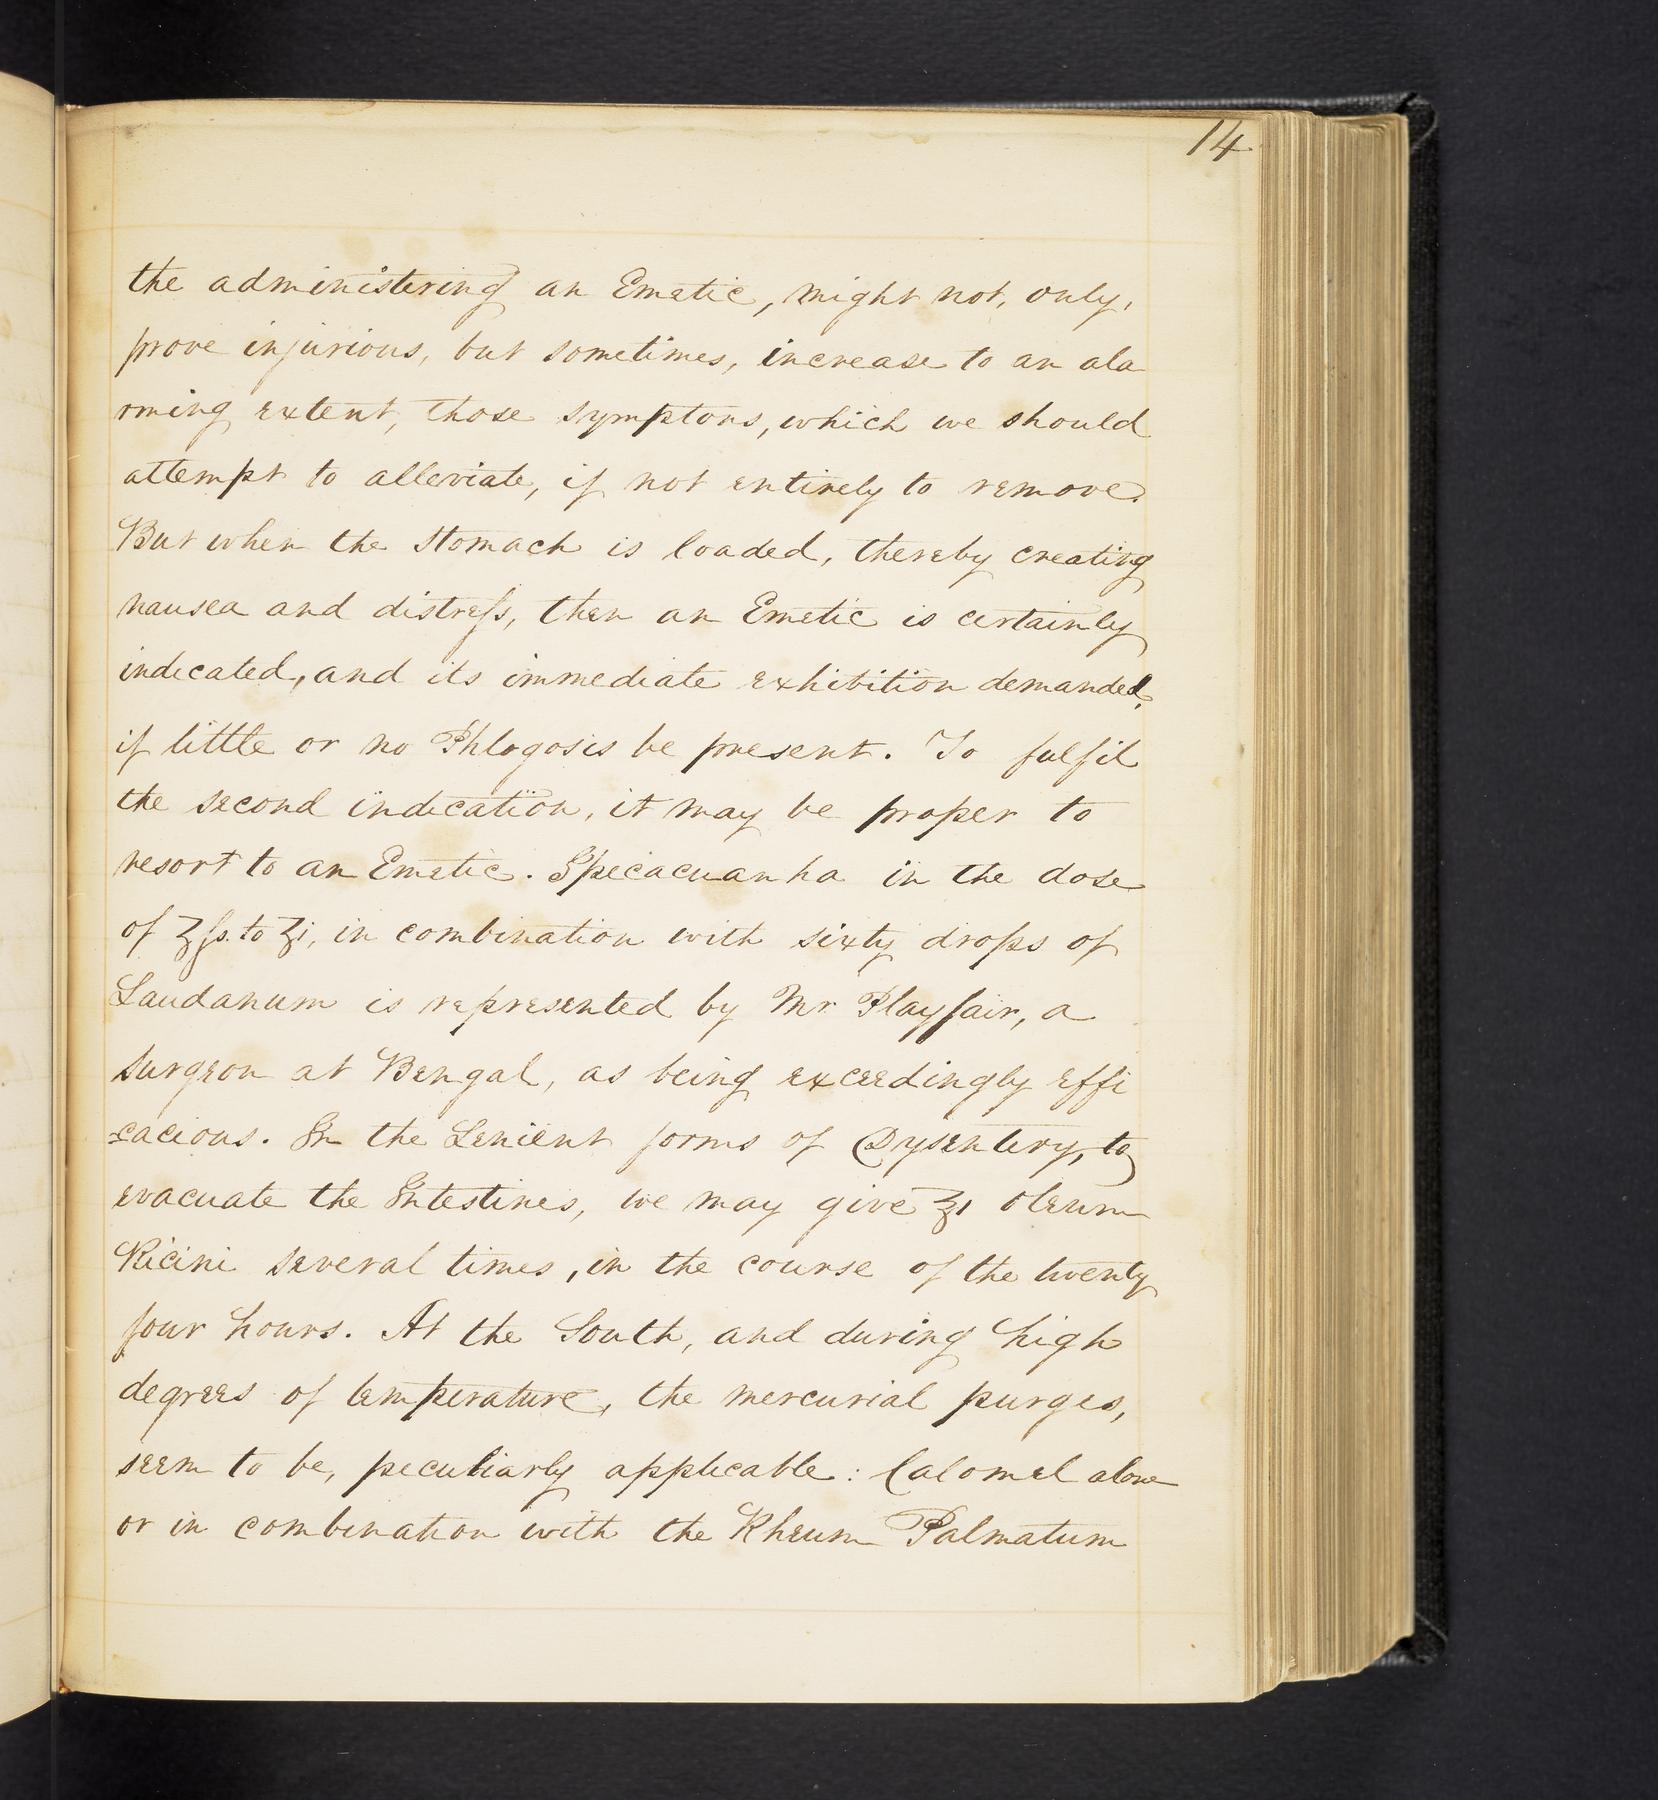 14
the administering an Emetic, might not, only,
prove injurious, but sometimes, increase to an ala
rming extent, those symptons, which we should
attempt to alleviate, if not entirely to remove.
But when the stomach is loaded, thereby creating
nausea and distreſs, then an Emetic is certainly
indicated, and its immediate exhibition demanded,
if little or no Phlogosis be present. To fulfil
the second indication, it may be proper to
resort to an Emetic. Ipecacuanha in the dose
of ʒſs. to ʒi, in combination with sixty drops of
Laudanum is represented by Mr Playfair, a
surgeon at Bengal, as being exceedingly effi
cacious. In the Lenient forms of Dysentery, to
evacuate the Intestines, we may give ʒi Oleum
Ricini several times, in the course of the twenty
four hours. At the South, and during high
degrees of temperature, the mercurial purges,
seem to be, peculiarly applicable: Calomel alone
or in combination with the Rheum Palmatum